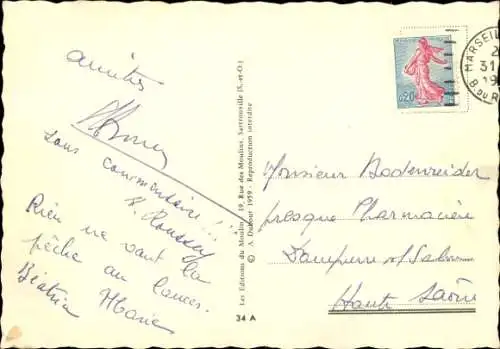 amitiés
sans commentaire!!!
R. Roussey
Rien ne vaut la
pêche au lancer.
Béatrice Marie
Les Editions du Moulin, 19, Rue des Moulins, Sartrouville (S.-et-O.)
© A. Dubout 1959 - Reproduction interdite
34 A
0,20
MARSEILL
2
31
19
B DU R
Monsieur Bodenreider
presque Pharmacien
Dampierre s/ Salon
Haute Saône